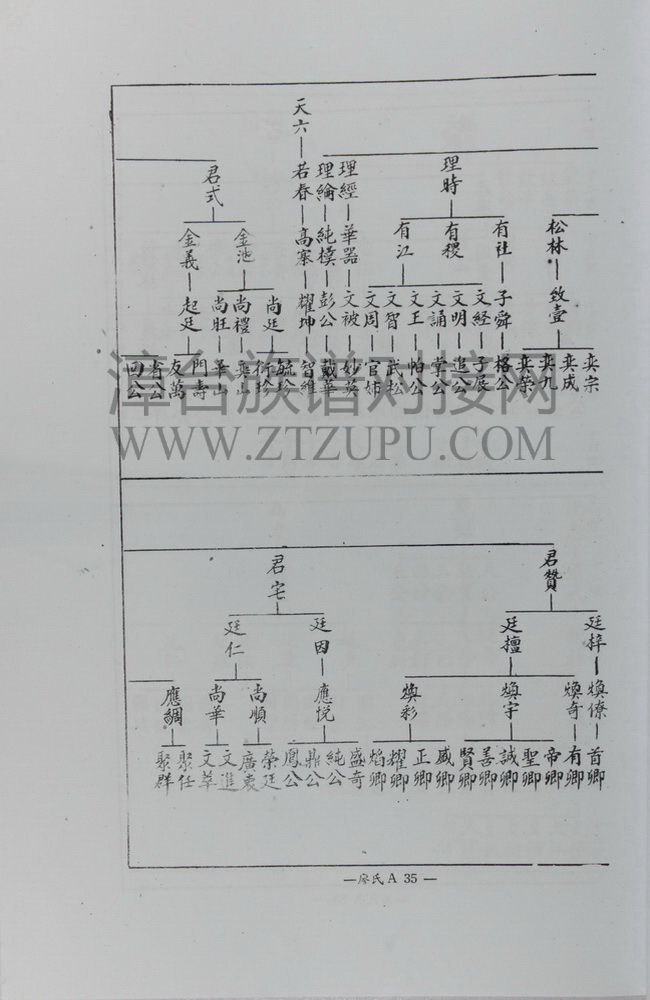 松林
致壹
奕宗
奕成
奕九
奕榮
理時
有社
有稷
有江
子舜
文經
文明
文誦
文正
文智
文周
格公
子展
追公
常公
帕公
武松
官姊
理經
華器
文被
妙英
理綸
純樸
彭公
戴華
天六
若春
高寨
耀坤
智維
君式
金池
金義
尚廷
尚禮
尚旺
起廷
毓珍
衍珍
奕山
華山
門壽
友萬
省公
回公
漳台族谱对接网
WWW.ZTZUPU.COM
君贊
廷梓
廷檀
煥僚
煥奇
煥宇
煥彩
首卿
有卿
帝卿
聖卿
誠卿
善卿
賢卿
咸卿
正卿
耀卿
焰卿
君宅
廷因
廷仁
應悦
尚順
尚華
應鵰
盛奇
純公
鼎公
鳳公
榮廷
廣袁
文進
文萃
聚任
聚群
—廖氏 A 35 —